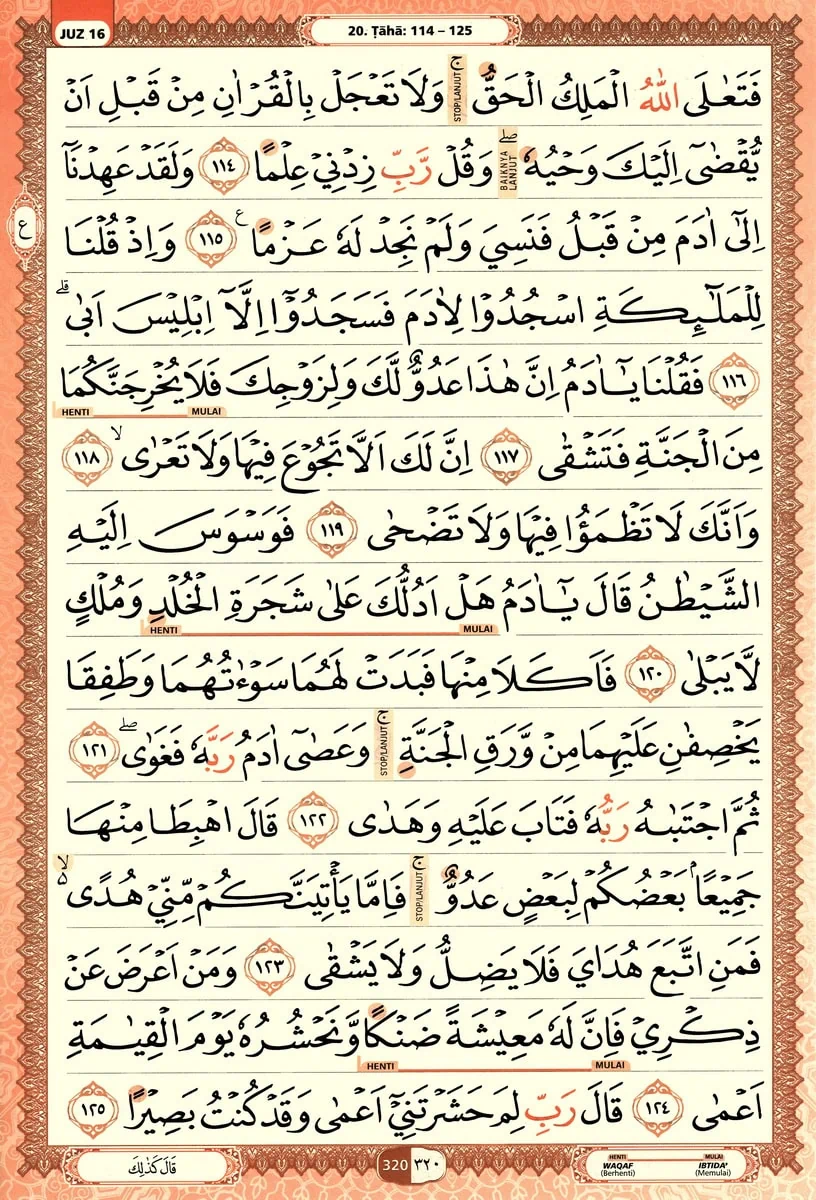 JUZ 16
20. Ṭāhā: 114 – 125
فَتَعٰلَى اللّٰهُ الْمَلِكُ الْحَقُّۚ STOP/LANJUT وَلَا تَعْجَلْ بِالْقُرْاٰنِ مِنْ قَبْلِ اَنْ
يُّقْضٰىٓ اِلَيْكَ وَحْيُهٗ ۖ BAIKNYA LANJUT وَقُلْ رَّبِّ زِدْنِيْ عِلْمًا ١١٤ وَلَقَدْ عَهِدْنَآ
ع
اِلٰٓى اٰدَمَ مِنْ قَبْلُ فَنَسِيَ وَلَمْ نَجِدْ لَهٗ عَزْمًا ࣖ ١١٥ وَاِذْ قُلْنَا
لِلْمَلٰۤىِٕكَةِ اسْجُدُوْا لِاٰدَمَ فَسَجَدُوْٓا اِلَّآ اِبْلِيْسَ اَبٰى ۗ
١١٦ فَقُلْنَا يٰٓاٰدَمُ اِنَّ هٰذَا عَدُوٌّ لَّكَ وَلِزَوْجِكَ فَلَا يُخْرِجَنَّكُمَا
HENTI MULAI
مِنَ الْجَنَّةِ فَتَشْقٰى ١١٧ اِنَّ لَكَ اَلَّا تَجُوْعَ فِيْهَا وَلَا تَعْرٰى ۙ ١١٨
وَاَنَّكَ لَا تَظْمَؤُا فِيْهَا وَلَا تَضْحٰى ١١٩ فَوَسْوَسَ اِلَيْهِ
الشَّيْطٰنُ قَالَ يٰٓاٰدَمُ هَلْ اَدُلُّكَ عَلٰى شَجَرَةِ الْخُلْدِ وَمُلْكٍ
HENTI MULAI
لَّا يَبْلٰى ١٢٠ فَاَكَلَا مِنْهَا فَبَدَتْ لَهُمَا سَوْءٰتُهُمَا وَطَفِقَا
يَخْصِفٰنِ عَلَيْهِمَا مِنْ وَّرَقِ الْجَنَّةِۚ STOP/LANJUT وَعَصٰىٓ اٰدَمُ رَبَّهٗ فَغَوٰى ۖ ١٢١
ثُمَّ اجْتَبٰىهُ رَبُّهٗ فَتَابَ عَلَيْهِ وَهَدٰى ١٢٢ قَالَ اهْبِطَا مِنْهَا
جَمِيْعًاۢ بَعْضُكُمْ لِبَعْضٍ عَدُوٌّ ۚ STOP/LANJUT فَاِمَّا يَأْتِيَنَّكُمْ مِّنِّيْ هُدًى ەۙ
فَمَنِ اتَّبَعَ هُدَايَ فَلَا يَضِلُّ وَلَا يَشْقٰى ١٢٣ وَمَنْ اَعْرَضَ عَنْ
ذِكْرِيْ فَاِنَّ لَهٗ مَعِيْشَةً ضَنْكًا وَّنَحْشُرُهٗ يَوْمَ الْقِيٰمَةِ
HENTI MULAI
اَعْمٰى ١٢٤ قَالَ رَبِّ لِمَ حَشَرْتَنِيْٓ اَعْمٰى وَقَدْ كُنْتُ بَصِيْرًا ١٢٥
قَالَ كَذٰلِكَ
320 ٣٢٠
HENTI MULAI
WAQAF IBTIDA'
(Berhenti) (Memulai)